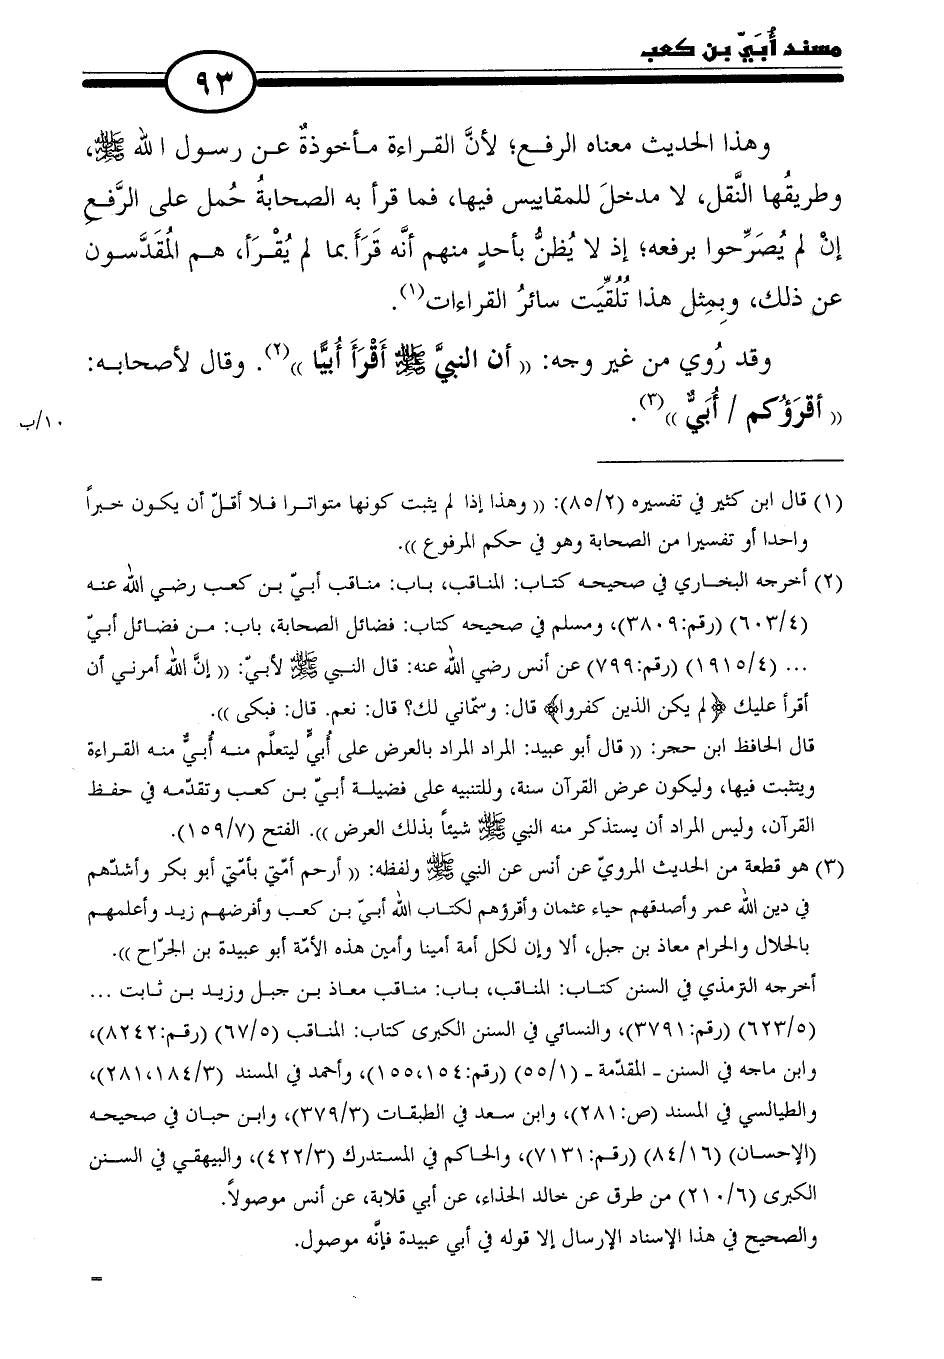 مسند أُبَيّ بن كعب
٩٣
وهذا الحديث معناه الرفع؛ لأنَّ القراءة مأخوذةٌ عن رسول الله ﷺ،
وطريقُها النَّقل، لا مدخلَ للمقاييس فيها، فما قرأ به الصحابةُ حُمل على الرَّفعِ
إنْ لم يُصَرِّحوا برفعه؛ إذ لا يُظنُّ بأحدٍ منهم أنَّه قَرَأَ بما لم يُقْرَأ، هم المُقَدَّسون
عن ذلك، وبِمِثل هذا تُلُقِّيَت سائرُ القراءات(١).
وقد رُوي من غير وجه: (( أن النبيَّ ﷺ أَقْرَأَ أُبيًّا ))(٢). وقال لأصحابه:
(( أقرَؤُكم / أُبَيٌّ ))(٣).
١٠/ب
(١) قال ابن كثير في تفسيره (٨٥/٢): (( وهذا إذا لم يثبت كونها متواترا فلا أقلّ أن يكون خبراً
واحدا أو تفسيرا من الصحابة وهو في حكم المرفوع )).
(٢) أخرجه البخاري في صحيحه كتاب: المناقب، باب: مناقب أبيّ بن كعب رضي الله عنه
(٦٠٣/٤) (رقم:٣٨٠٩)، ومسلم في صحيحه كتاب: فضائل الصحابة، باب: من فضائل أبيّ
... (١٩١٥/٤) (رقم:٧٩٩) عن أنس رضي الله عنه: قال النبي ﷺ لأبيّ: (( إنَّ الله أمرني أن
أقرأ عليك ﴿لم يكن الذين كفروا﴾ قال: وسمّاني لك؟ قال: نعم. قال: فبكى )).
قال الحافظ ابن حجر: (( قال أبو عبيد: المراد المراد بالعرض على أُبيٍّ ليتعلَّم منه أُبيٌّ منه القراءة
ويتثبت فيها، وليكون عرض القرآن سنة، وللتنبيه على فضيلة أبيّ بن كعب وتقدّمه في حفظ
القرآن، وليس المراد أن يستذكر منه النبي ﷺ شيئاً بذلك العرض )). الفتح (١٥٩/٧).
(٣) هو قطعة من الحديث المرويّ عن أنس عن النبي ﷺ ولفظه: (( أرحم أمّتي بأمّتي أبو بكر وأشدّهم
في دين الله عمر وأصدقهم حياء عثمان وأقرؤهم لكتاب الله أبيّ بن كعب وأفرضهم زيد وأعلمهم
بالحلال والحرام معاذ بن جبل، ألا وإن لكل أمة أمينا وأمين هذه الأمّة أبو عبيدة بن الجرّاح )).
أخرجه الترمذي في السنن كتاب: المناقب، باب: مناقب معاذ بن جبل وزيد بن ثابت ...
(٦٢٣/٥) (رقم:٣٧٩١)، والنسائي في السنن الكبرى كتاب: المناقب (٦٧/٥) (رقم:٨٢٤٢)،
وابن ماجه في السنن ـ المقدّمة ـ (٥٥/١) (رقم:١٥٥،١٥٤)، وأحمد في المسند (٢٨١،١٨٤/٣)،
والطيالسي في المسند (ص:٢٨١)، وابن سعد في الطبقات (٣٧٩/٣)، وابن حبان في صحيحه
(الإحسان) (٨٤/١٦) (رقم:٧١٣١)، والحاكم في المستدرك (٤٢٢/٣)، والبيهقي في السنن
الكبرى (٢١٠/٦) من طرق عن خالد الحذاء، عن أبي قلابة، عن أنس موصولاً.
والصحيح في هذا الإسناد الإرسال إلا قوله في أبي عبيدة فإنَّه موصول.
=